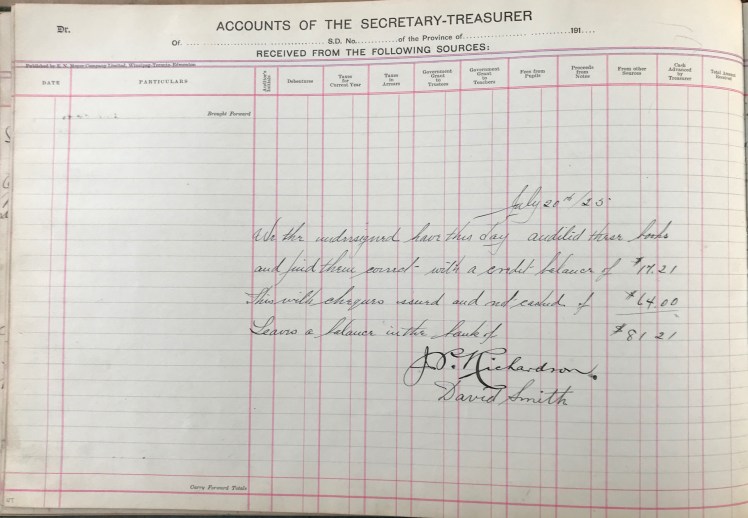 Dr.
ACCOUNTS OF THE SECRETARY-TREASURER
Of S.D. No. of the Province of 191
RECEIVED FROM THE FOLLOWING SOURCES:
Published by Company Limited, Winnipeg-Toronto-Edmonton
DATE PARTICULARS Debentures Taxes for Current Year Taxes in Arrears Government Grant to Trustees Government Grant to Teachers Fees from Pupils Proceeds from Notes From other Sources Cash Advanced by Treasurer Total Amount Received
Brought Forward
July 20th/25
We the undersigned have this day audited these books
and find them correct - with a credit balance of $17.21
This with cheques issued and not cashed of $64.00
Leaves a balance in the bank of $81 21
Richardson.
David Smith
Carry Forward Totals